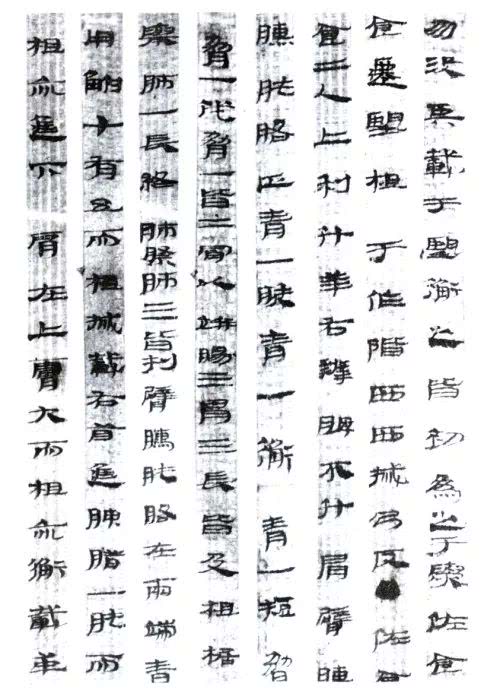 勿没其載于衡之皆初為之于爨佐食
食遷俎于作階西西搣乃反佐食
食二人上利升羊右不升肩臂臑
臑肫胳正脊一脡脊一衡脊一短脅
脅一代脅一皆二骨以竝腸三胃三長皆及俎椐
舉肺一長終肺祭肺三皆刌臂臑肫胳在兩端脊
用鮒十有五而俎搣載右首進腴腊一肫而
俎亦進下肩在上膚九而俎亦衡載革